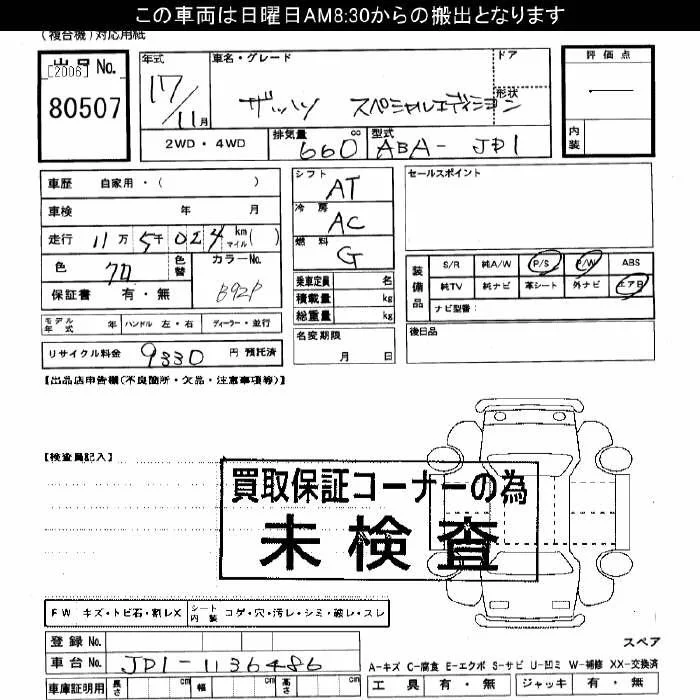 この車両は日曜日AM8:30からの搬出となります
(複合機)対応用紙
出品 No.
[2006]
80507
年式 17/11月
車名・グレード
ザッツ スペシャルエディション
ドア
形状
評価点
内装
2WD・4WD
排気量 660 cc
型式 ABA-JD1
車歴 自家用・( )
車検 年 月
走行 11万5千024 km マイル( )
色 クロ
色替
カラーNo. B92P
保証書 有・無
シフト AT
冷房 AC
燃料 G
乗車定員 名
積載量 kg
総重量 kg
セールスポイント
装備品
S/R 純A/W P/S P/W ABS
純TV 純ナビ 革シート 外ナビ エアB
ナビ型番:
モデル年式 年 ハンドル 左・右 ディーラー・並行
名変期限 月 日
後日品
リサイクル料金 9330 円 預託済
【出品店申告欄(不良箇所・欠品・注意事項等)】
【検査員記入】
買取保証コーナーの為
未検査
FW キズ・トビ石・割レX シート内装 コゲ・穴・汚レ・シミ・破レ・スレ
登録 No.
スペア
車台 No. JD1-1136486
A-キズ C-腐食 E-エクボ S-サビ U-凹ミ W-補修 XX-交換済
車庫証明用 長さ cm 幅 cm 高さ cm
工具 有・無 ジャッキ 有・無